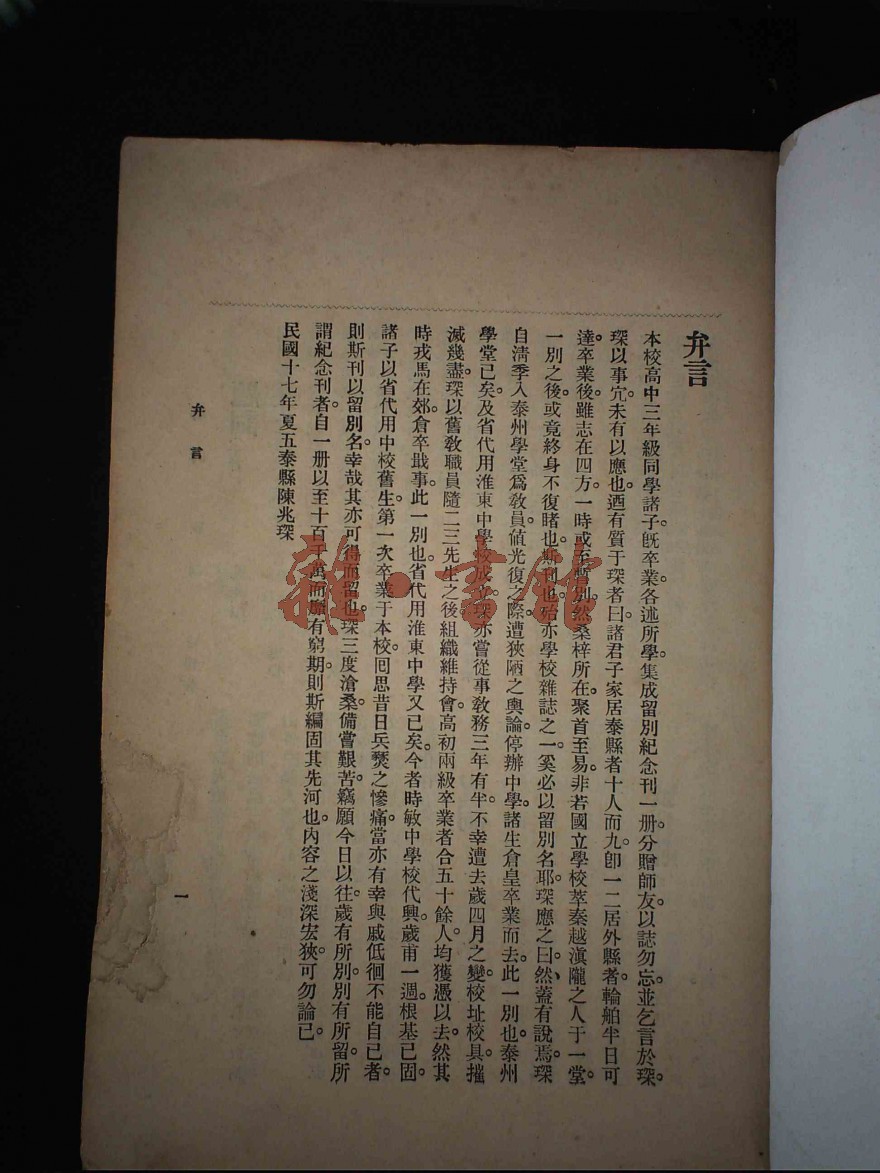 弁言
本校高中三年級同學諸子。旣卒業。各述所學。集成留別紀念刊一册。分贈師友。以誌勿忘。並乞言於琛。
琛以事宂。未有以應也。迺有質于琛者曰。諸君子家居泰縣者十人而九。卽一二居外縣者。輪舶半日可
達。卒業後。雖志在四方。一時或至暫別。然桑梓所在。聚首至易。非若國立學校萃秦越滇隴之人于一堂。
一別之後。或竟終身不復睹也。斯刊也。殆亦學校雜誌之一。奚必以留別名耶。琛應之曰。然。蓋有說焉。琛
自淸季入泰州學堂爲敎員。値光復之際。遭狹陋之輿論。停辦中學。諸生倉皇卒業而去。此一別也。泰州
學堂已矣。及省代用淮東中學校成立。琛亦嘗從事敎務三年有半。不幸遭去歲四月之變。校址校具。摧
滅幾盡。琛以舊敎職員隨二三先生之後。組織維持會。高初兩級卒業者合五十餘人。均獲憑以去。然其
時戎馬在郊。倉卒戢事。此一別也。省代用淮東中學又已矣。今者時敏中學校代興。歲甫一週。根基已固。
諸子以省代用中校舊生。第一次卒業于本校。囘思昔日兵燹之慘痛。當亦有幸與戚低徊不能自已者。
則斯刊以留別名。幸哉其亦可得而留也。琛三度滄桑。備嘗艱苦。竊願今日以往。歲有所別。別有所留。所
謂紀念刊者。自一册以至十百千萬而靡有窮期。則斯編固其先河也。內容之淺深宏狹。可勿論已。
民國十七年夏五泰縣陳兆琛
弁言
一
雜·書館